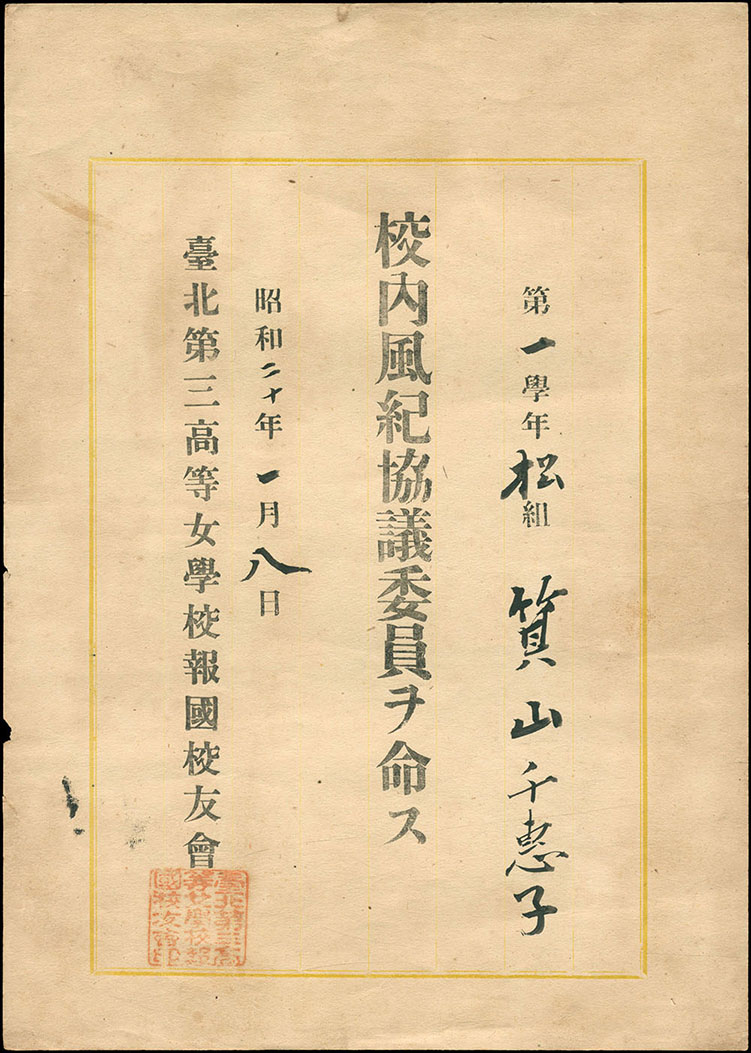 第一學年松組 箕山千惠子
校內風紀協議委員ヲ命ス
昭和二十年一月八日
臺北第三高等女學校報國校友會
臺北第三高
等女學校報
國校友會印